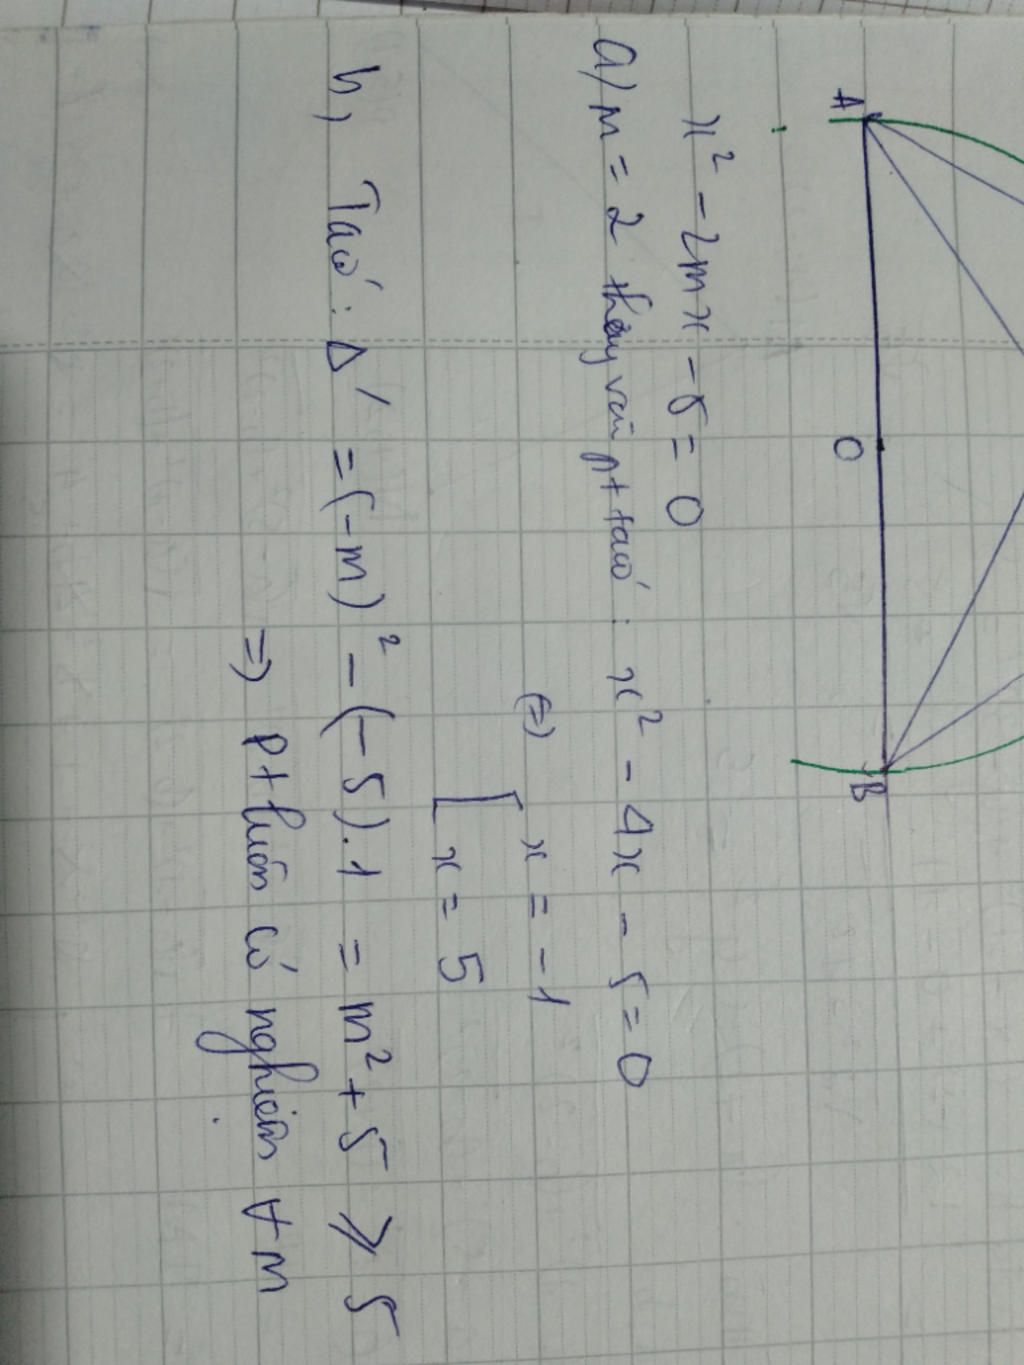 A
O
B
x² - 2mx - 5 = 0
a/ m = 2 thay vào pt ta có : x² - 4x - 5 = 0
(=) [ x = -1
x = 5
b, Ta có : Δ' = (-m)² - (-5).1 = m² + 5 ⩾ 5
=) pt luôn có nghiệm ∀m